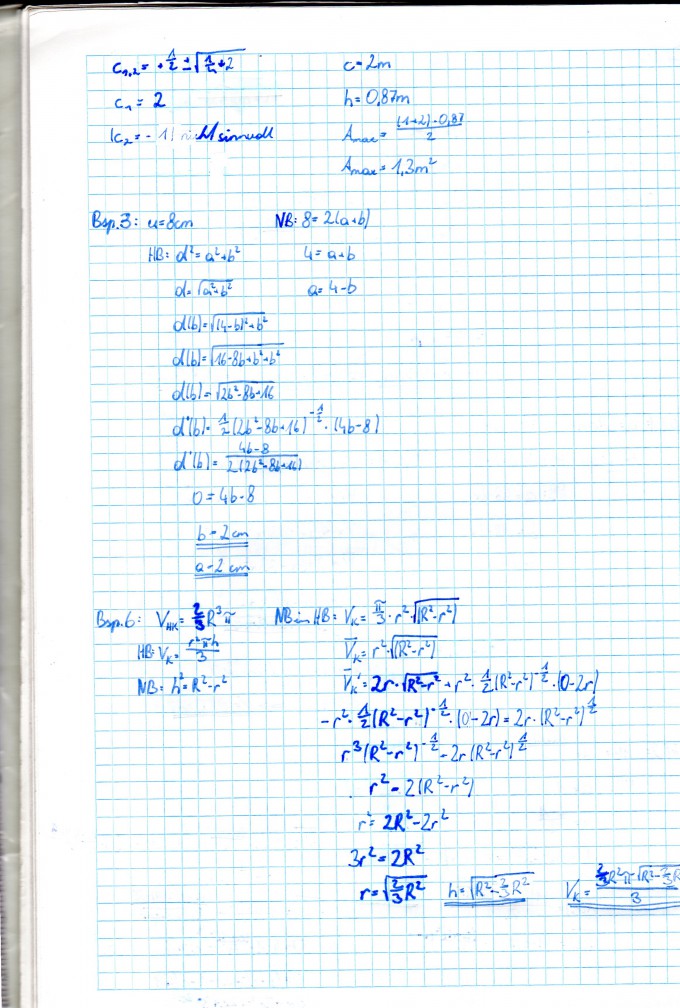 c₁,₂ = + 1/2 ± √(1/4 + 2)
c₁ = 2
(c₂ = - 1) nicht sinnvoll
c = 2m
h = 0,87m
Amax = (1+2)·0,87 / 2
Amax = 1,3m²
Bsp. 3: u = 8cm
HB: d² = a² + b²
d = √(a² + b²)
d(b) = √((4-b)² + b²)
d(b) = √(16 - 8b + b² + b²)
d(b) = √(2b² - 8b + 16)
d'(b) = 1/2 (2b² - 8b + 16)^(-1/2) · (4b - 8)
d'(b) = (4b - 8) / 2(2b² - 8b + 16)
0 = 4b - 8
b = 2 cm
a = 2 cm
NB: 8 = 2(a+b)
4 = a + b
a = 4 - b
Bsp. 6: V_HK = 2/3 R³ π
HB: V_K = r² π h / 3
NB: h² = R² - r²
NB in HB: V_K = π/3 · r² · √(R² - r²)
V̅_K = r² · √(R² - r²)
V̅_K' = 2r · √(R² - r²) + r² · 1/2 (R² - r²)^(-1/2) · (0 - 2r)
- r² · 1/2 (R² - r²)^(-1/2) · (0 - 2r) = 2r · (R² - r²)^(1/2)
r³ (R² - r²)^(-1/2) = 2r (R² - r²)^(1/2)
r² = 2(R² - r²)
r² = 2R² - 2r²
3r² = 2R²
r = √(2/3 R²)
h = √(R² - 2/3 R²)
V_K = 2/3 R² π · √(R² - 2/3 R / 3